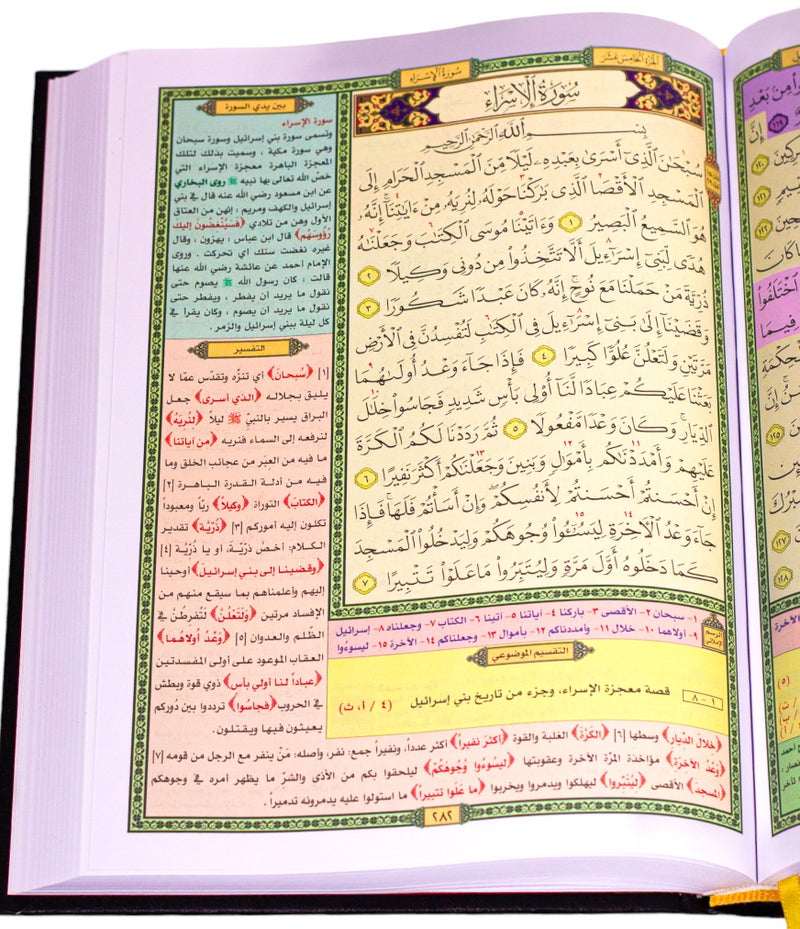 الجزء الخامس عشر
سورة الإسراء
سورة الإسراء
بسم الله الرحمن الرحيم
سُبْحَٰنَ ٱلَّذِىٓ أَسْرَىٰ بِعَبْدِهِۦ لَيْلًا مِّنَ ٱلْمَسْجِدِ ٱلْحَرَامِ إِلَى
ٱلْمَسْجِدِ ٱلْأَقْصَا ٱلَّذِى بَٰرَكْنَا حَوْلَهُۥ لِنُرِيَهُۥ مِنْ ءَايَٰتِنَآ إِنَّهُۥ
هُوَ ٱلسَّمِيعُ ٱلْبَصِيرُ ١ وَءَاتَيْنَا مُوسَى ٱلْكِتَٰبَ وَجَعَلْنَٰهُ
هُدًى لِّبَنِىٓ إِسْرَٰٓءِيلَ أَلَّا تَتَّخِذُوا۟ مِن دُونِى وَكِيلًا ٢
ذُرِّيَّةَ مَنْ حَمَلْنَا مَعَ نُوحٍ إِنَّهُۥ كَانَ عَبْدًا شَكُورًا ٣
وَقَضَيْنَآ إِلَىٰ بَنِىٓ إِسْرَٰٓءِيلَ فِى ٱلْكِتَٰبِ لَتُفْسِدُنَّ فِى ٱلْأَرْضِ
مَرَّتَيْنِ وَلَتَعْلُنَّ عُلُوًّا كَبِيرًا ٤ فَإِذَا جَآءَ وَعْدُ أُولَىٰهُمَا
بَعَثْنَا عَلَيْكُمْ عِبَادًا لَّنَآ أُو۟لِى بَأْسٍ شَدِيدٍ فَجَاسُوا۟ خِلَٰلَ
ٱلدِّيَارِ وَكَانَ وَعْدًا مَّفْعُولًا ٥ ثُمَّ رَدَدْنَا لَكُمُ ٱلْكَرَّةَ
عَلَيْهِمْ وَأَمْدَدْنَٰكُم بِأَمْوَٰلٍ وَبَنِينَ وَجَعَلْنَٰكُمْ أَكْثَرَ نَفِيرًا ٦
إِنْ أَحْسَنتُمْ أَحْسَنتُمْ لِأَنفُسِكُمْ وَإِنْ أَسَأْتُمْ فَلَهَا فَإِذَا
جَآءَ وَعْدُ ٱلْءَاخِرَةِ لِيَسُۥٓـُٔوا۟ وُجُوهَكُمْ وَلِيَدْخُلُوا۟ ٱلْمَسْجِدَ
كَمَا دَخَلُوهُ أَوَّلَ مَرَّةٍ وَلِيُتَبِّرُوا۟ مَا عَلَوْا۟ تَتْبِيرًا ٧
الرسم الإملائي
١- سبحان ٢- الأقصى ٣- باركنا ٤- آياتنا ٥- آتينا ٦- الكتاب ٧- وجعلناه ٨- إسرائيل
٩- أولاهما ١٠- خلال ١١- وأمددناكم ١٢- بأموال ١٣- وجعلناكم ١٤- الآخرة ١٥- ليسوءوا
التقسيم الموضوعي
١ - ٨ قصة معجزة الإسراء، وجزء من تاريخ بني إسرائيل (٤ / أ، ث)
بين يدي السورة
سورة الإسراء
وتسمى سورة بني إسرائيل وسورة سبحان
وهي سورة مكية ، وسميت بذلك لتلك
المعجزة الباهرة معجزة الإسراء التي
خصّ الله تعالى بها نبيه ﷺ روى البخاري
عن ابن مسعود رضي الله عنه قال في بني
إسرائيل والكهف ومريم : إنهن من العتاق
الأول وهن من تلادي ﴿فسيُنغضون إليك
رُؤُوسَهُم﴾ قال ابن عباس : يهزون ، وقال
غيره نغضت سنك أي تحركت . وروى
الإمام أحمد عن عائشة رضي الله عنها
قالت : كان رسول الله ﷺ يصوم حتى
نقول ما يريد أن يفطر ، ويفطر حتى
نقول ما يريد أن يصوم ، وكان يقرأ في
كل ليلة ببني إسرائيل والزمر.
التفسير
[١] ﴿سُبحانَ﴾ أي تنزّه وتقدّس عمّا لا
يليق بجلاله ﴿الذي أسرى﴾ جعل
البراق يسير بالنبيّ ﷺ ليلاً ﴿لنُريَهُ﴾
لنرفعه إلى السماء فنريه ﴿من آياتنا﴾
ما فيه من العبَر من عجائب الخلق وما
فيه من أدلة القدرة الباهرة [٢]
﴿الكتابَ﴾ التوراة ﴿وكيلاً﴾ ربّاً ومعبوداً
تكلون إليه أموركم [٣] ﴿ذُرّيّة﴾ تقدير
الكلام: أخصُ ذرّيّة، أو يا ذُرّيّة [٤]
﴿وقضينا إلى بني إسرائيل﴾ أوحينا
إليهم وأعلمناهم بما سيقع منهم من
الإفساد مرتين ﴿ولَتَعْلُنَّ﴾ لتُفرطُنَّ في
الظّلم والعدوان [٥] ﴿وَعْدُ أولاهُما﴾
العقاب الموعود على أولى المفسدتين
﴿عباداً لنا أولي بأس﴾ ذوي قوة وبطش
في الحروب ﴿فجاسُوا﴾ ترددوا بين دُوركم
يعيثون فيها ويقتلون.
﴿خلالَ الدّيار﴾ وسطها [٦] ﴿الكَرَّة﴾ الغلبة والقوة ﴿أكثرَ نفيراً﴾ أكثر عدداً، ونفيراً جمع: نفر، وأصله: مَنْ ينفر مع الرجل من قومه [٧]
﴿وَعْدُ الآخرة﴾ مؤاخذة المرّة الآخرة وعقوبتها ﴿ليسُوءُوا وُجوهَكُمْ﴾ ليلحقوا بكم من الأذى والشرّ ما يظهر أمره في وجوهكم
﴿المسجدَ﴾ الأقصى ﴿ليُتَبّروا﴾ ليهلكوا ويدمروا ويخربوا ﴿ما عَلَوا تتبيراً﴾ ما استولوا عليه يدمرونه تدميراً .
٢٨٢